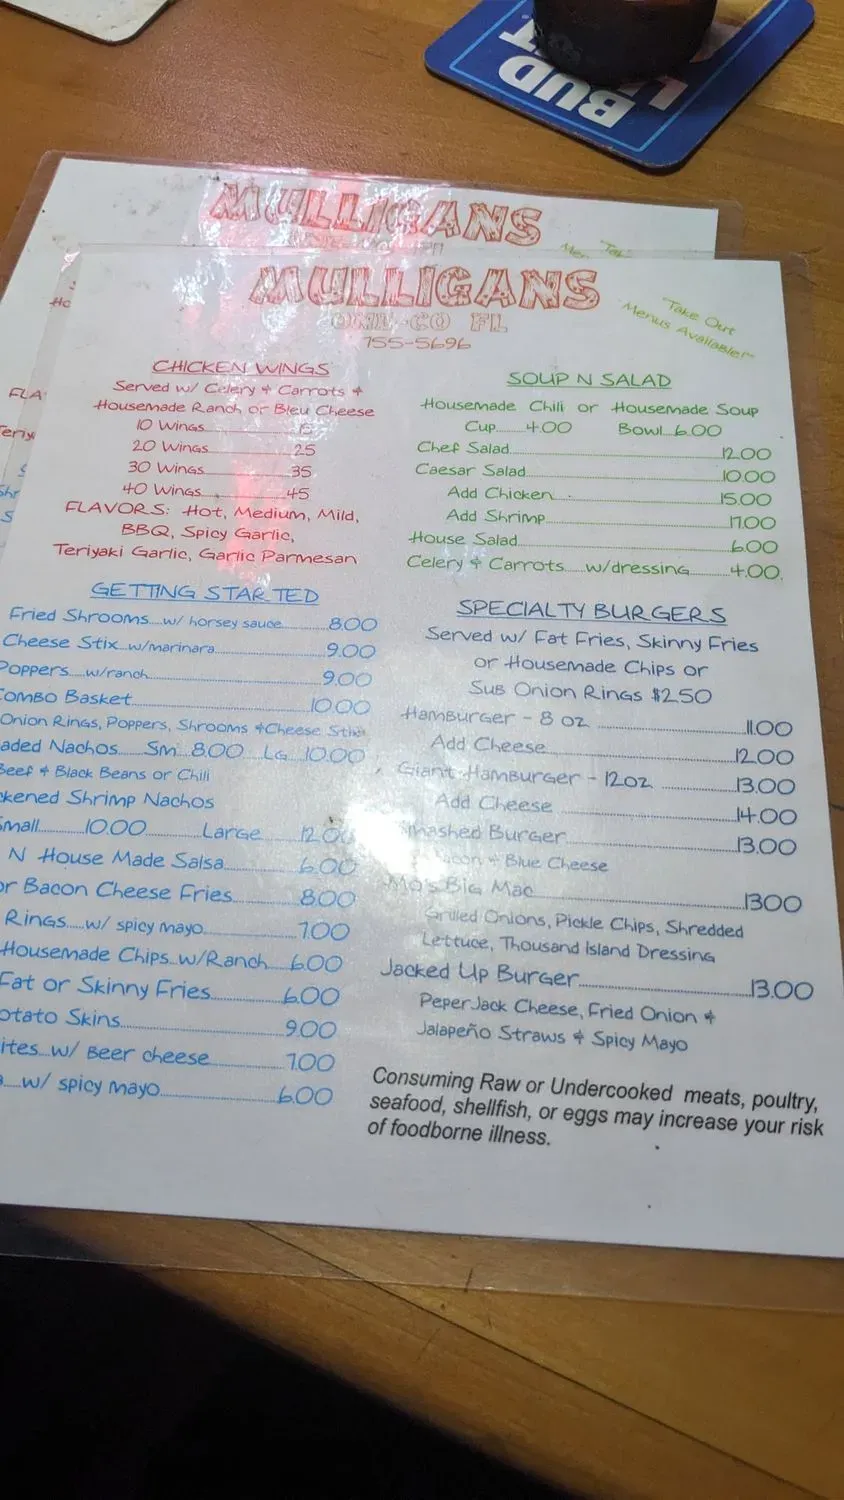 BUD
LIGHT
MULLIGANS
"Tak
Men
MULLIGANS
ONE-CO FL
755-5696
"Take Out
Menus Available!"
CHICKEN WINGS
Served w/ Celery & Carrots &
Housemade Ranch or Bleu Cheese
10 Wings 15
20 Wings 25
30 Wings 35
40 Wings 45
FLAVORS: Hot, Medium, Mild,
BBQ, Spicy Garlic,
Teriyaki Garlic, Garlic Parmesan
GETTING STARTED
Fried Shrooms....w/ horsey sauce 8.00
Cheese Stix...w/marinara 9.00
Poppers....w/ranch 9.00
Combo Basket 10.00
Onion Rings, Poppers, Shrooms & Cheese Stix
aded Nachos Sm 8.00 LG 10.00
Beef & Black Beans or Chili
ckened Shrimp Nachos
Small 10.00 Large 12.00
N House Made Salsa 6.00
or Bacon Cheese Fries 8.00
Rings....w/ spicy mayo 7.00
Housemade Chips...w/Ranch 6.00
Fat or Skinny Fries 6.00
otato Skins 9.00
ites...w/ Beer cheese 7.00
w/ spicy mayo 6.00
SOUP N SALAD
Housemade Chili or Housemade Soup
Cup 4.00 Bowl 6.00
Chef Salad 12.00
Caesar Salad 10.00
Add Chicken 15.00
Add Shrimp 17.00
House Salad 6.00
Celery & Carrots w/dressing 4.00
SPECIALTY BURGERS
Served w/ Fat Fries, Skinny Fries
or Housemade Chips or
Sub Onion Rings $2.50
Hamburger - 8 oz 11.00
Add Cheese 12.00
Giant Hamburger - 12oz 13.00
Add Cheese 14.00
Smashed Burger 13.00
Bacon & Blue Cheese
Mo's Big Mac 13.00
Grilled Onions, Pickle Chips, Shredded
Lettuce, Thousand Island Dressing
Jacked Up Burger 13.00
PeperJack Cheese, Fried Onion &
Jalapeño Straws & Spicy Mayo
Consuming Raw or Undercooked meats, poultry,
seafood, shellfish, or eggs may increase your risk
of foodborne illness.